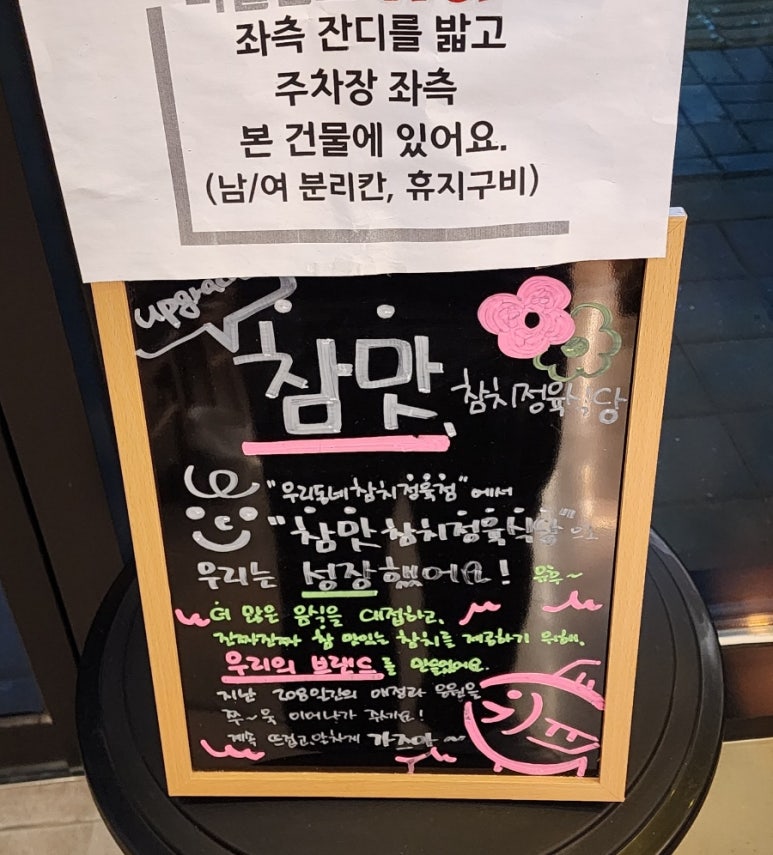 좌측 잔디를 밟고
주차장 좌측
본 건물에 있어요.
(남/여 분리칸, 휴지구비)
참맛
참치정육식당
"우리동네참치정육점"에서
"참맛 참치정육식당"으로
우리는 성장했어요! 유후~
더 많은 음식을 대접하고,
진짜진짜 참 맛있는 참치를 제공하기 위해,
우리의 브랜드를 만들었어요.
지난 208일간의 애정과 응원을
쭈~욱 이어나가 주세요!
계속 뜨겁고,알차게 가즈아~